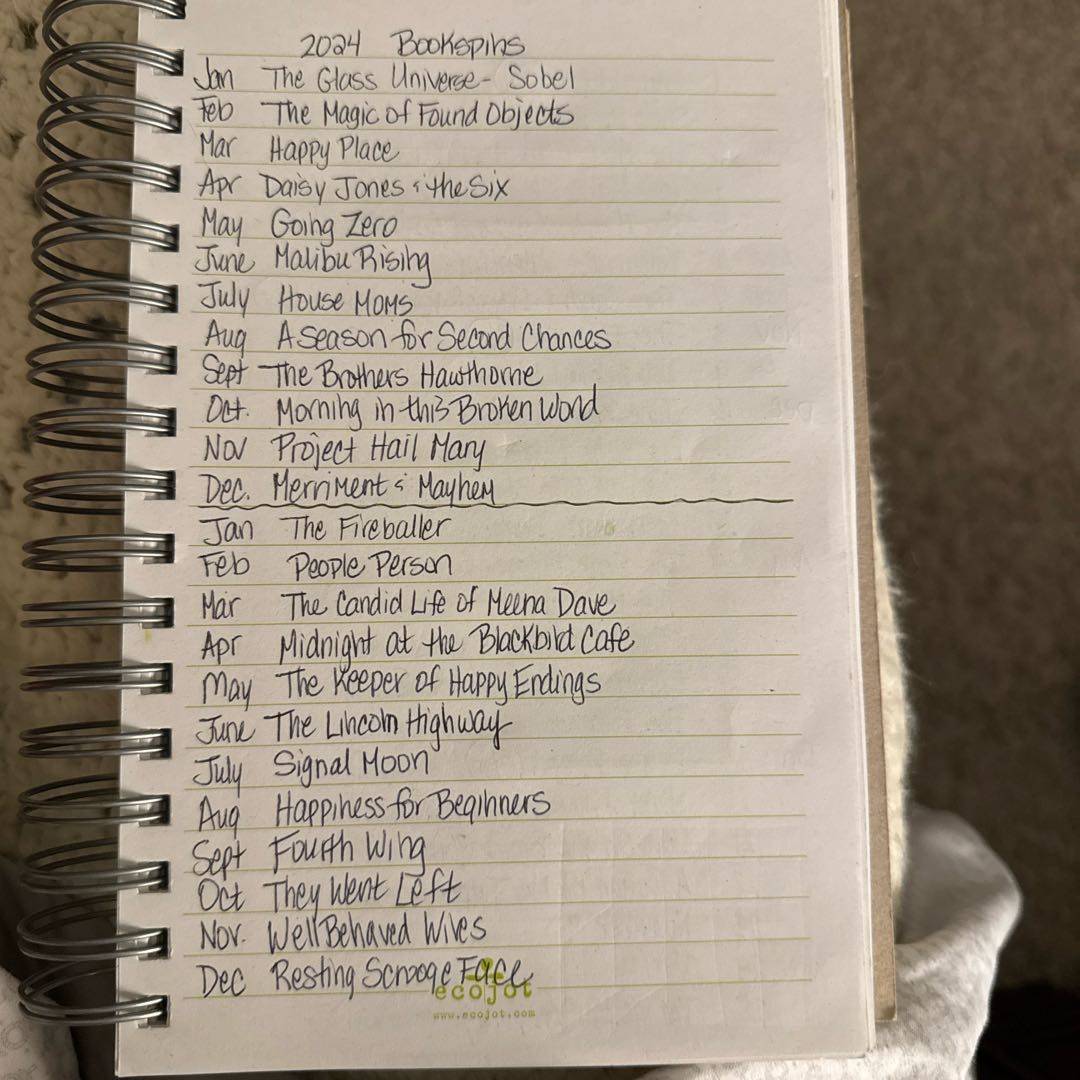 2024 Bookspins
Jan The Glass Universe - Sobel
Feb The Magic of Found Objects
Mar Happy Place
Apr Daisy Jones & the Six
May Going Zero
June Malibu Rising
July House Moms
Aug A Season for Second Chances
Sept The Brothers Hawthorne
Oct. Morning in this Broken World
Nov Project Hail Mary
Dec. Merriment & Mayhem
Jan The Fireballer
Feb People Person
Mar The Candid Life of Meena Dave
Apr Midnight at the Blackbird Cafe
May The Keeper of Happy Endings
June The Lincoln Highway
July Signal Moon
Aug Happiness for Beginners
Sept Fourth Wing
Oct They Went Left
Nov. Well Behaved Wives
Dec Resting Scrooge Face
ecojot
www.ecojot.com